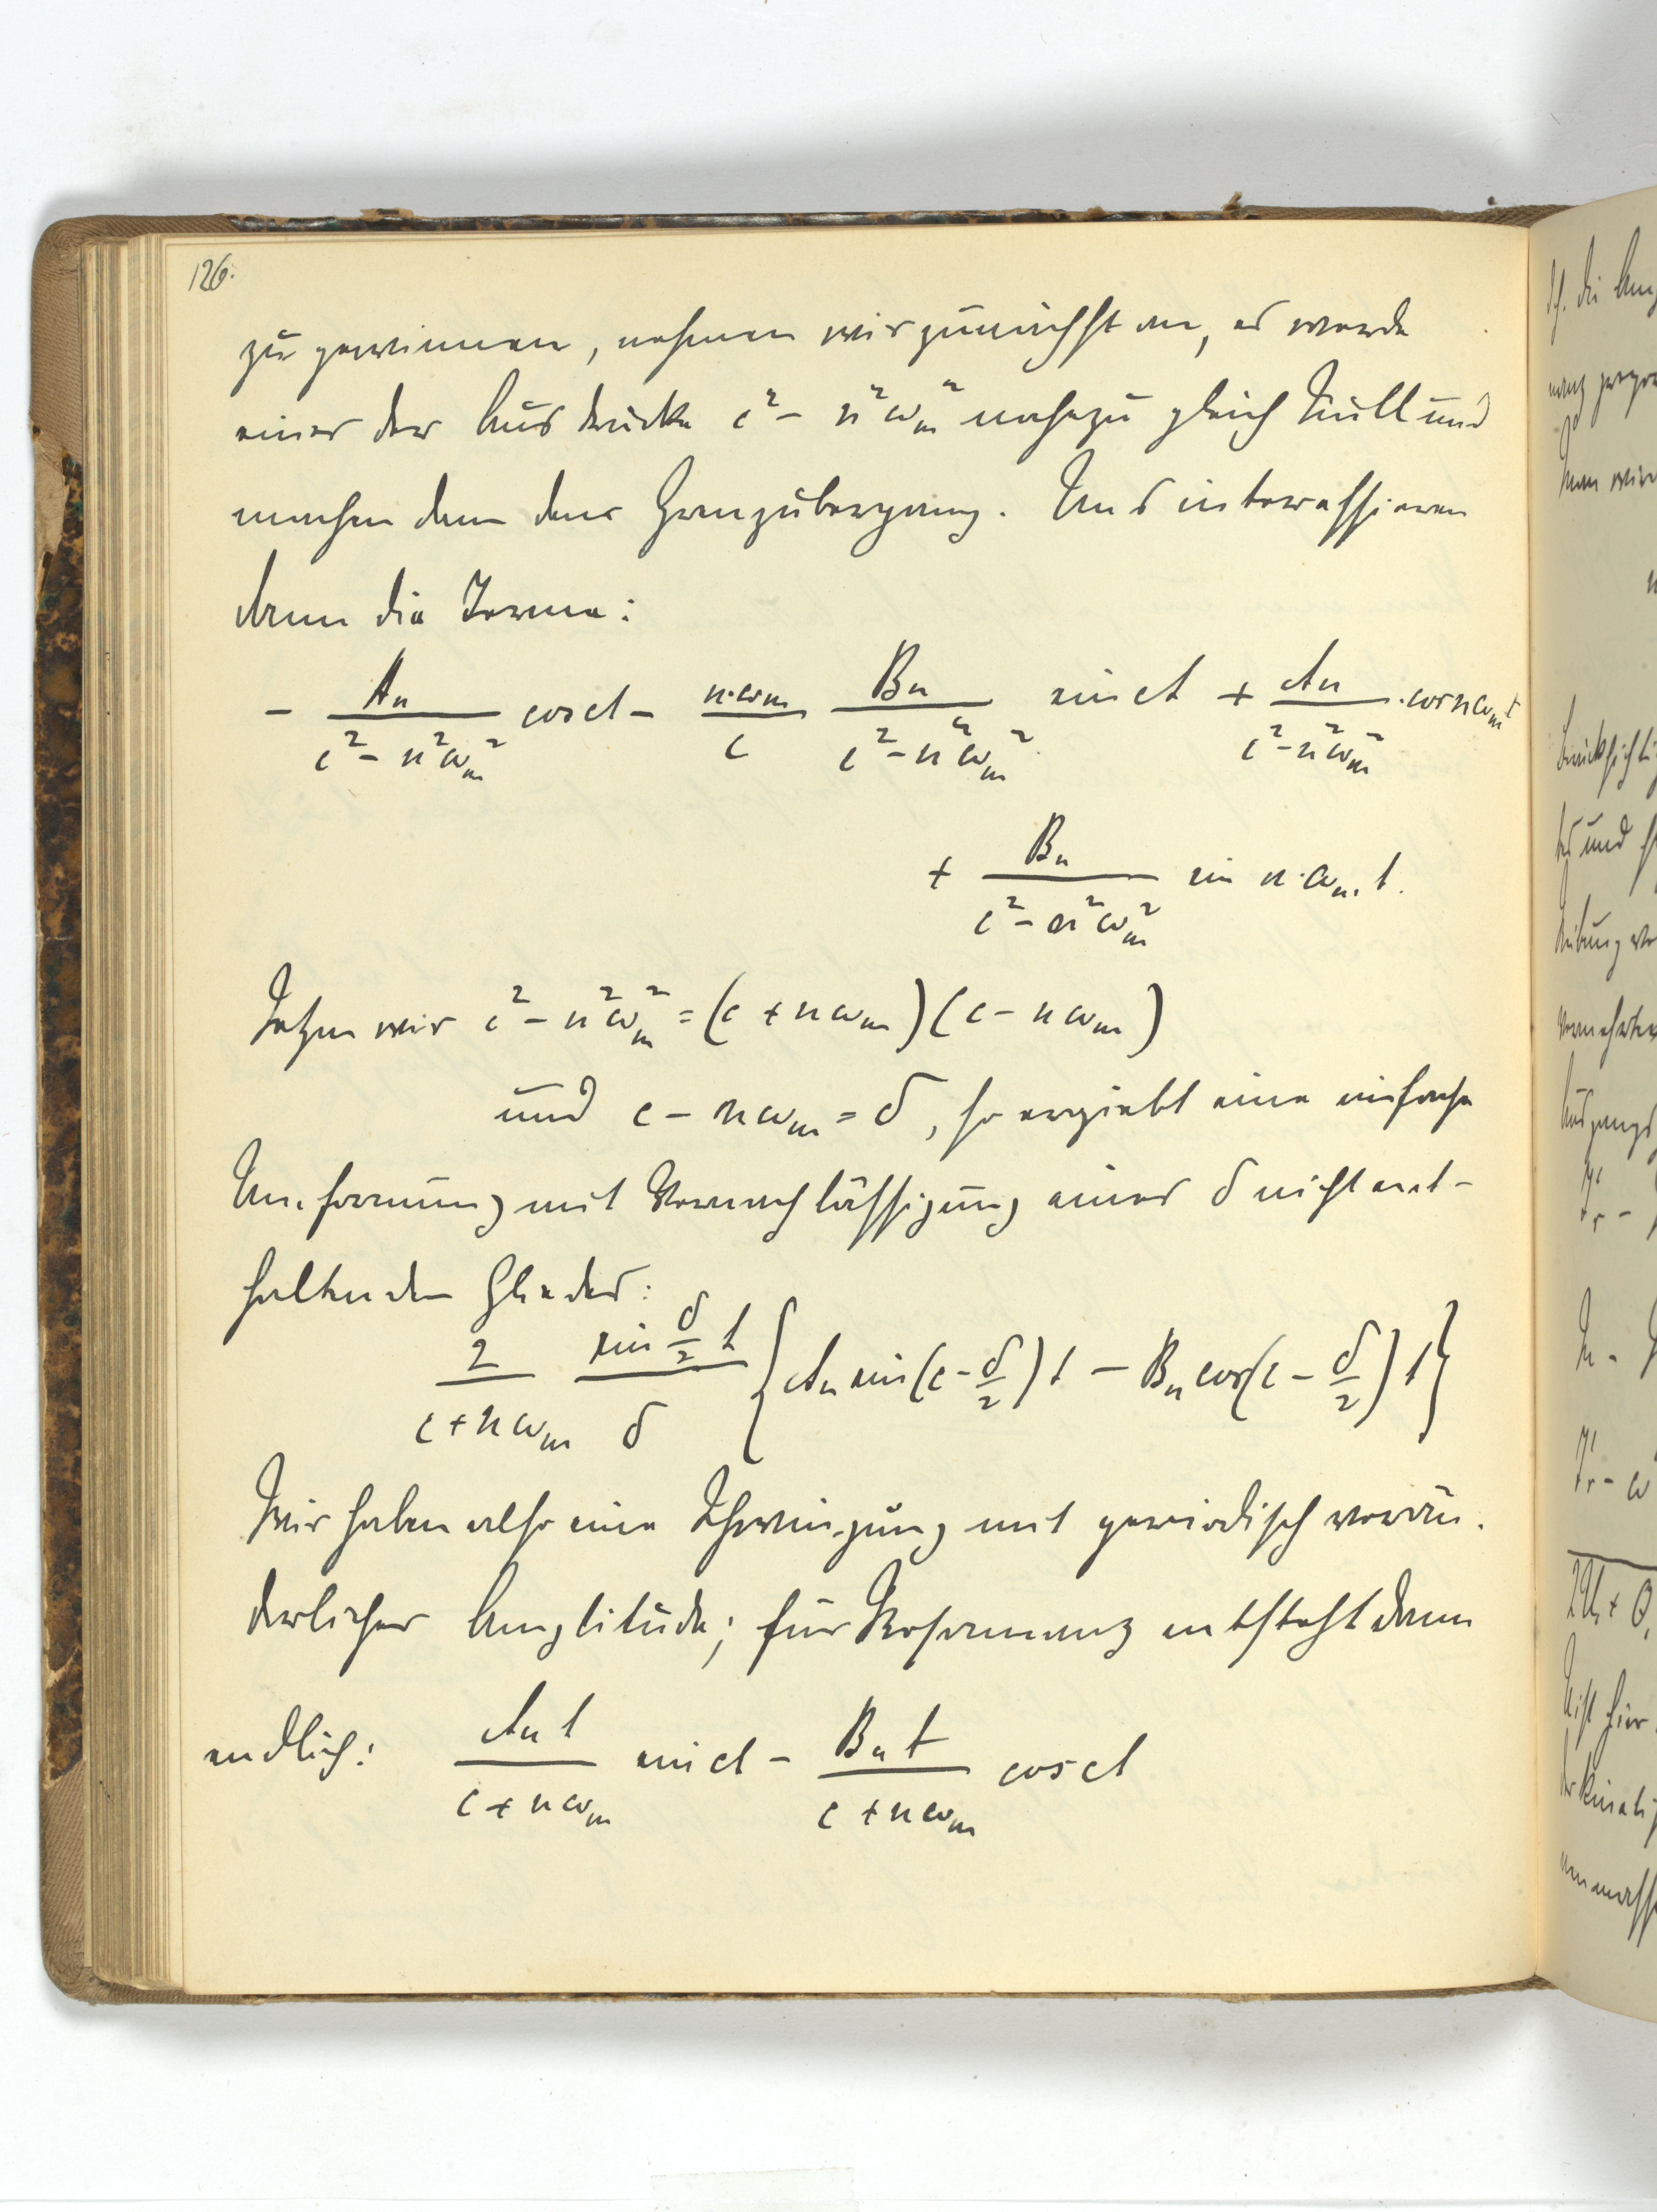 126.
zu gewinnen, nehmen wir zunächst an, es werde
einer der Ausdrücke c² - n²ω_m² nahezu gleich Null und
machen dann den Grenzübergang. Uns interessieren
dann die Terme:
- A_n/(c² - n²ω_m²) cos ct - n·ω_m/c B_n/(c² - n²ω_m²) sin ct + A_n/(c² - n²ω_m²) · cos nω_m t
+ B_n/(c² - n²ω_m²) sin n·ω_m·t.
Setzen wir c² - n²ω_m² = (c + nω_m)(c - nω_m)
und c - nω_m = δ, so ergiebt eine einfache
Umformung mit Vernachlässigung eines δ nicht ent-
haltenden Gliedes:
2/(c + nω_m) (sin δ/2 t)/δ {A_n sin(c - δ/2)t - B_n cos(c - δ/2)t}
Wir haben also eine Schwingung mit periodisch verän-
derlicher Amplitude; für Resonanz entsteht dann
endlich: A_n t/(c + nω_m) sin ct - B_n t/(c + nω_m) cos ct